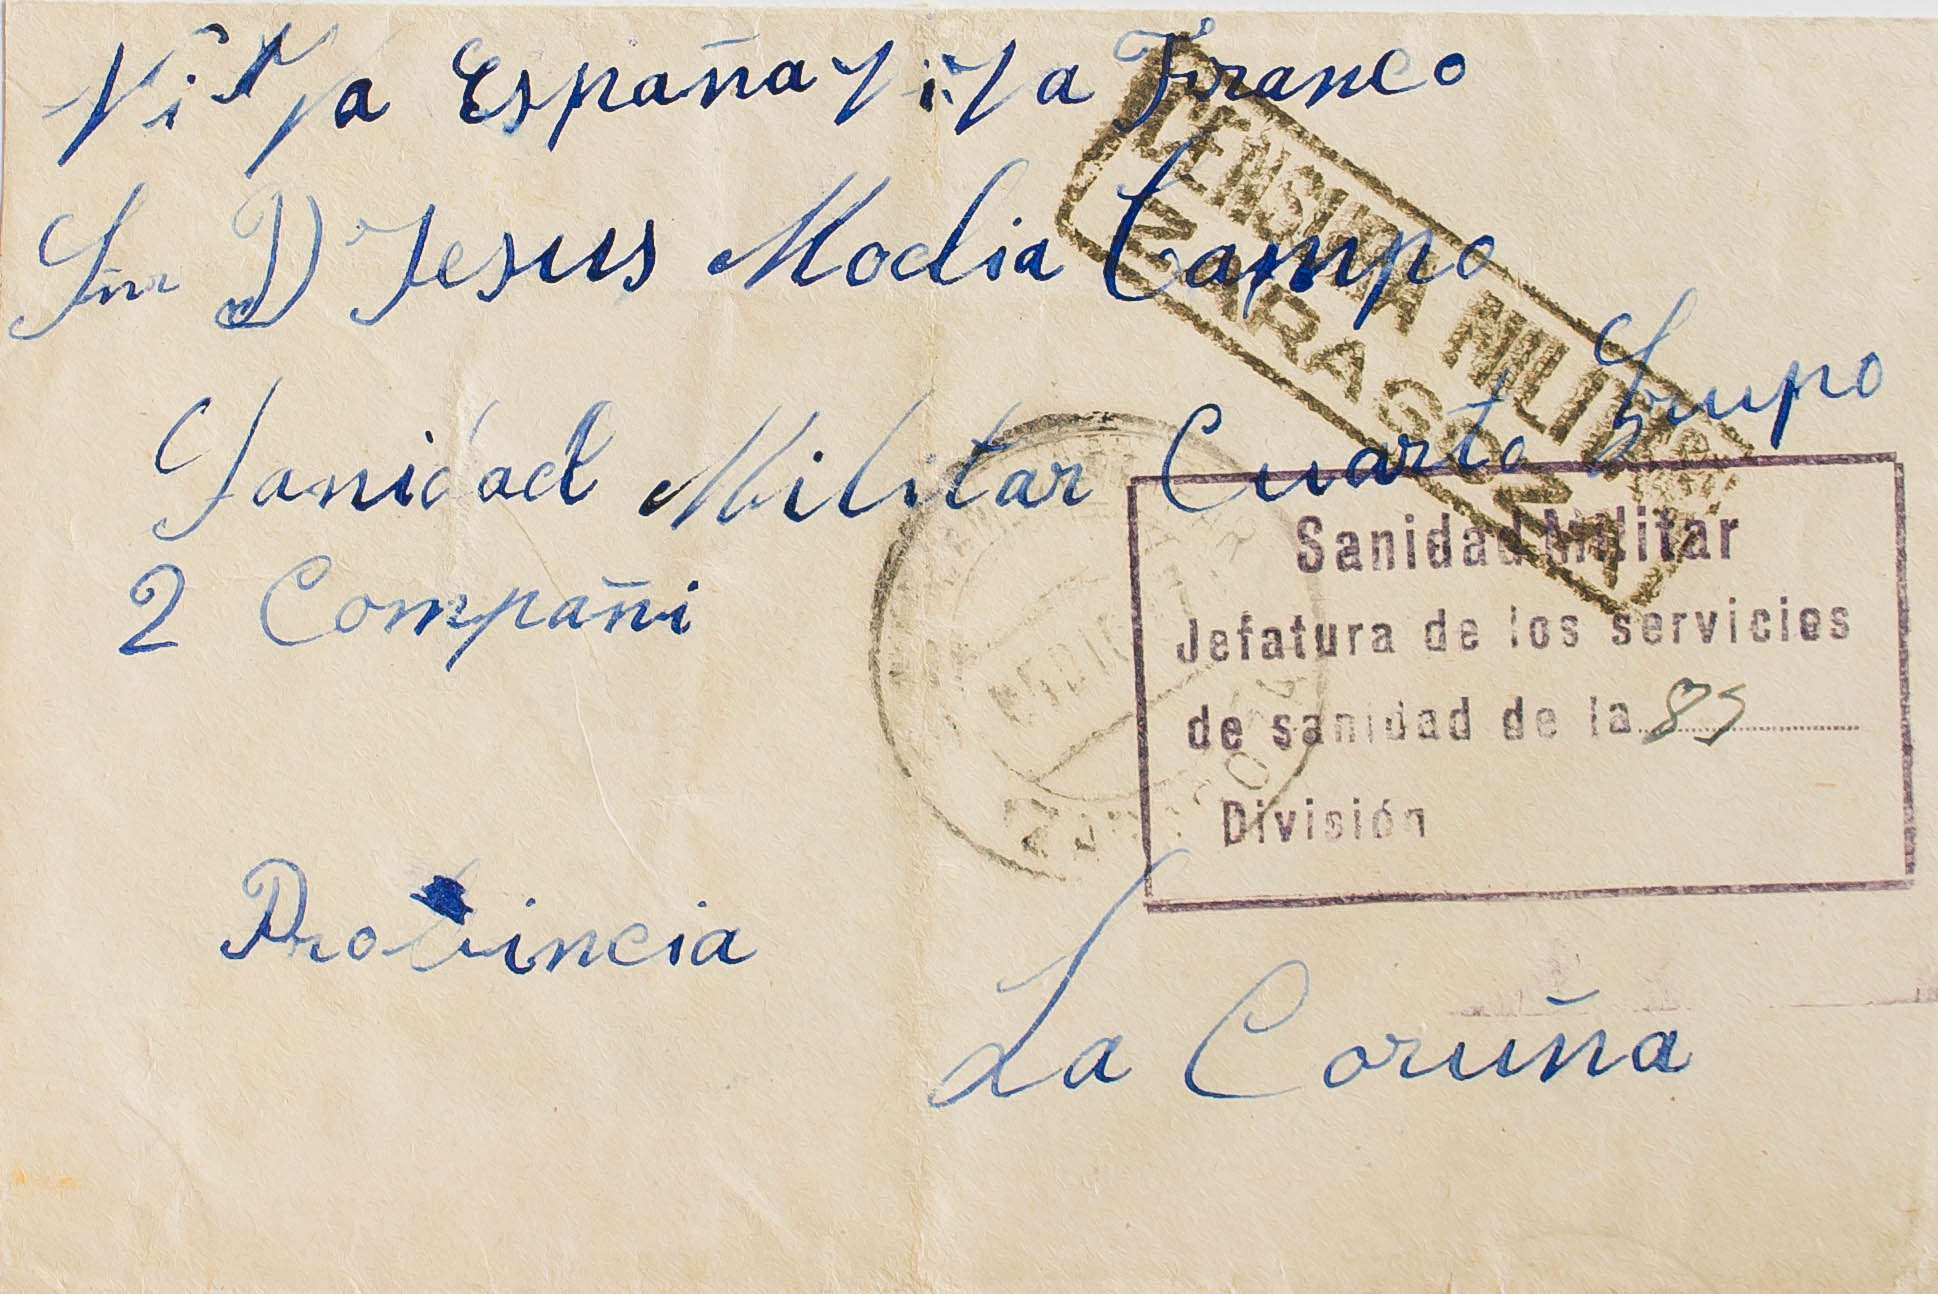 Viva España Viva Franco
Snr D Jesus Modia Campo
Sanidad Militar Cuarto Grupo
2 Compañi
Probincia
La Coruña
CENSURA MILITAR
ZARAGOZA
Sanidad Militar
Jefatura de los servicios
de sanidad de la 83
División